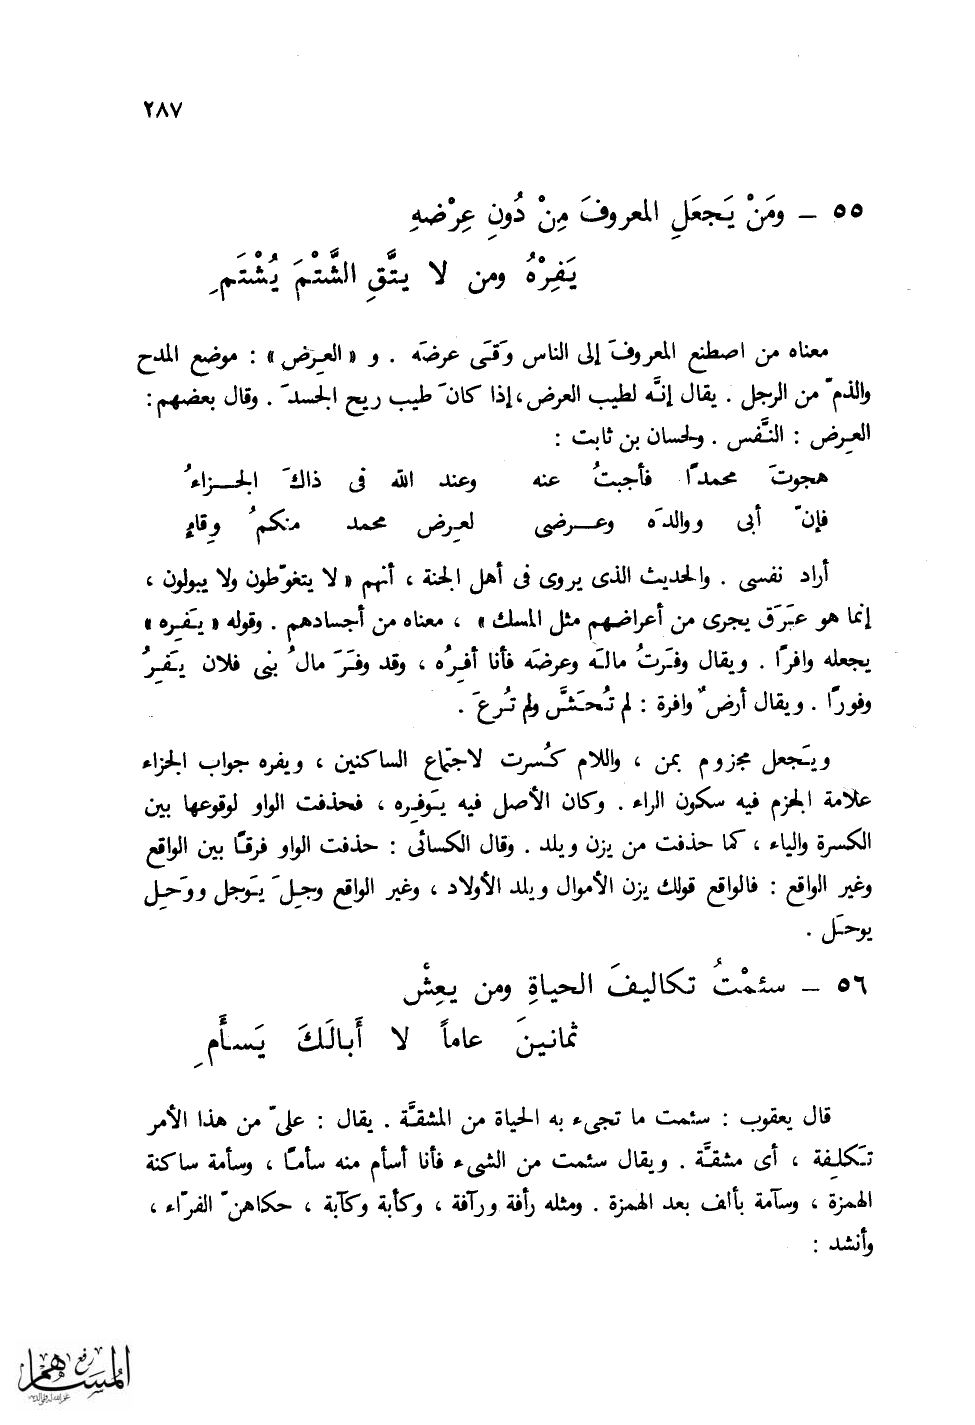 ٢٨٧
٥٥ – ومَنْ يَجعَلِ المعروفَ مِنْ دُونِ عِرْضهِ
يَفِرْهُ ومن لا يتَّقِ الشَّتْمَ يُشْتَمِ
معناه من اصطنع المعروفَ إلى الناس وَقَى عرضَه . و « العِرض » : موضع المدح
والذمّ من الرجل . يقال إنَّه لطيب العرض، إذا كانَ طيب ريح الجسدَ . وقال بعضهم :
العِرض : النَّفس . ولحسان بن ثابت :
هجوتَ محمدًا فأجبتُ عنه وعند الله فى ذاكَ الجزاءُ
فإنّ أبى ووالدَه وعرضى لعِرض محمد منكمُ وِقاءِ
أراد نفسى . والحديث الذى يروى فى أهل الجنة ، أنهم « لا يتغوّطون ولا يبولون ،
إنما هو عَرَق يجرى من أعراضهم مثل المسك » ، معناه من أجسادهم . وقوله « يَفِره »
يجعله وافرًا . ويقال وفَرتُ مالَه وعرضَه فأنا أفِرُه ، وقد وفَرَ مالُ بنى فلان يَفِرُ
وفورًا . ويقال أرضٌ وافرة : لم تُحتَشَّ ولم تُرعَ .
ويَجعل مجزوم بمن ، واللام كُسرت لاجتماع الساكنين ، ويفره جواب الجزاء
علامة الجزم فيه سكون الراء . وكان الأصل فيه يَوفِره ، فحذفت الواو لوقوعها بين
الكسرة والياء ، كما حذفت من يزن ويلد . وقال الكسائى : حذفت الواو فرقًا بين الواقع
وغير الواقع : فالواقع قولك يزن الأموال ويلد الأولاد ، وغير الواقع وجِلَ يَوجل ووَحِل
يوحَل .
٥٦ – سئمْتُ تكاليفَ الحياةِ ومن يعِشْ
ثمانينَ عاماً لا أَبالَكَ يَسأَمِ
قال يعقوب : سئمت ما تجىء به الحياة من المشقَّة . يقال : علىّ من هذا الأمر
تَكلِفة ، أى مشقَّة . ويقال سئمت من الشىء فأنا أسأم منه سأمًا ، وسأمة ساكنة
الهمزة ، وسآمة بألف بعد الهمزة . ومثله رأفة ورآفة ، وكأبة وكآبة ، حكاهنّ الفرّاء ،
وأنشد :